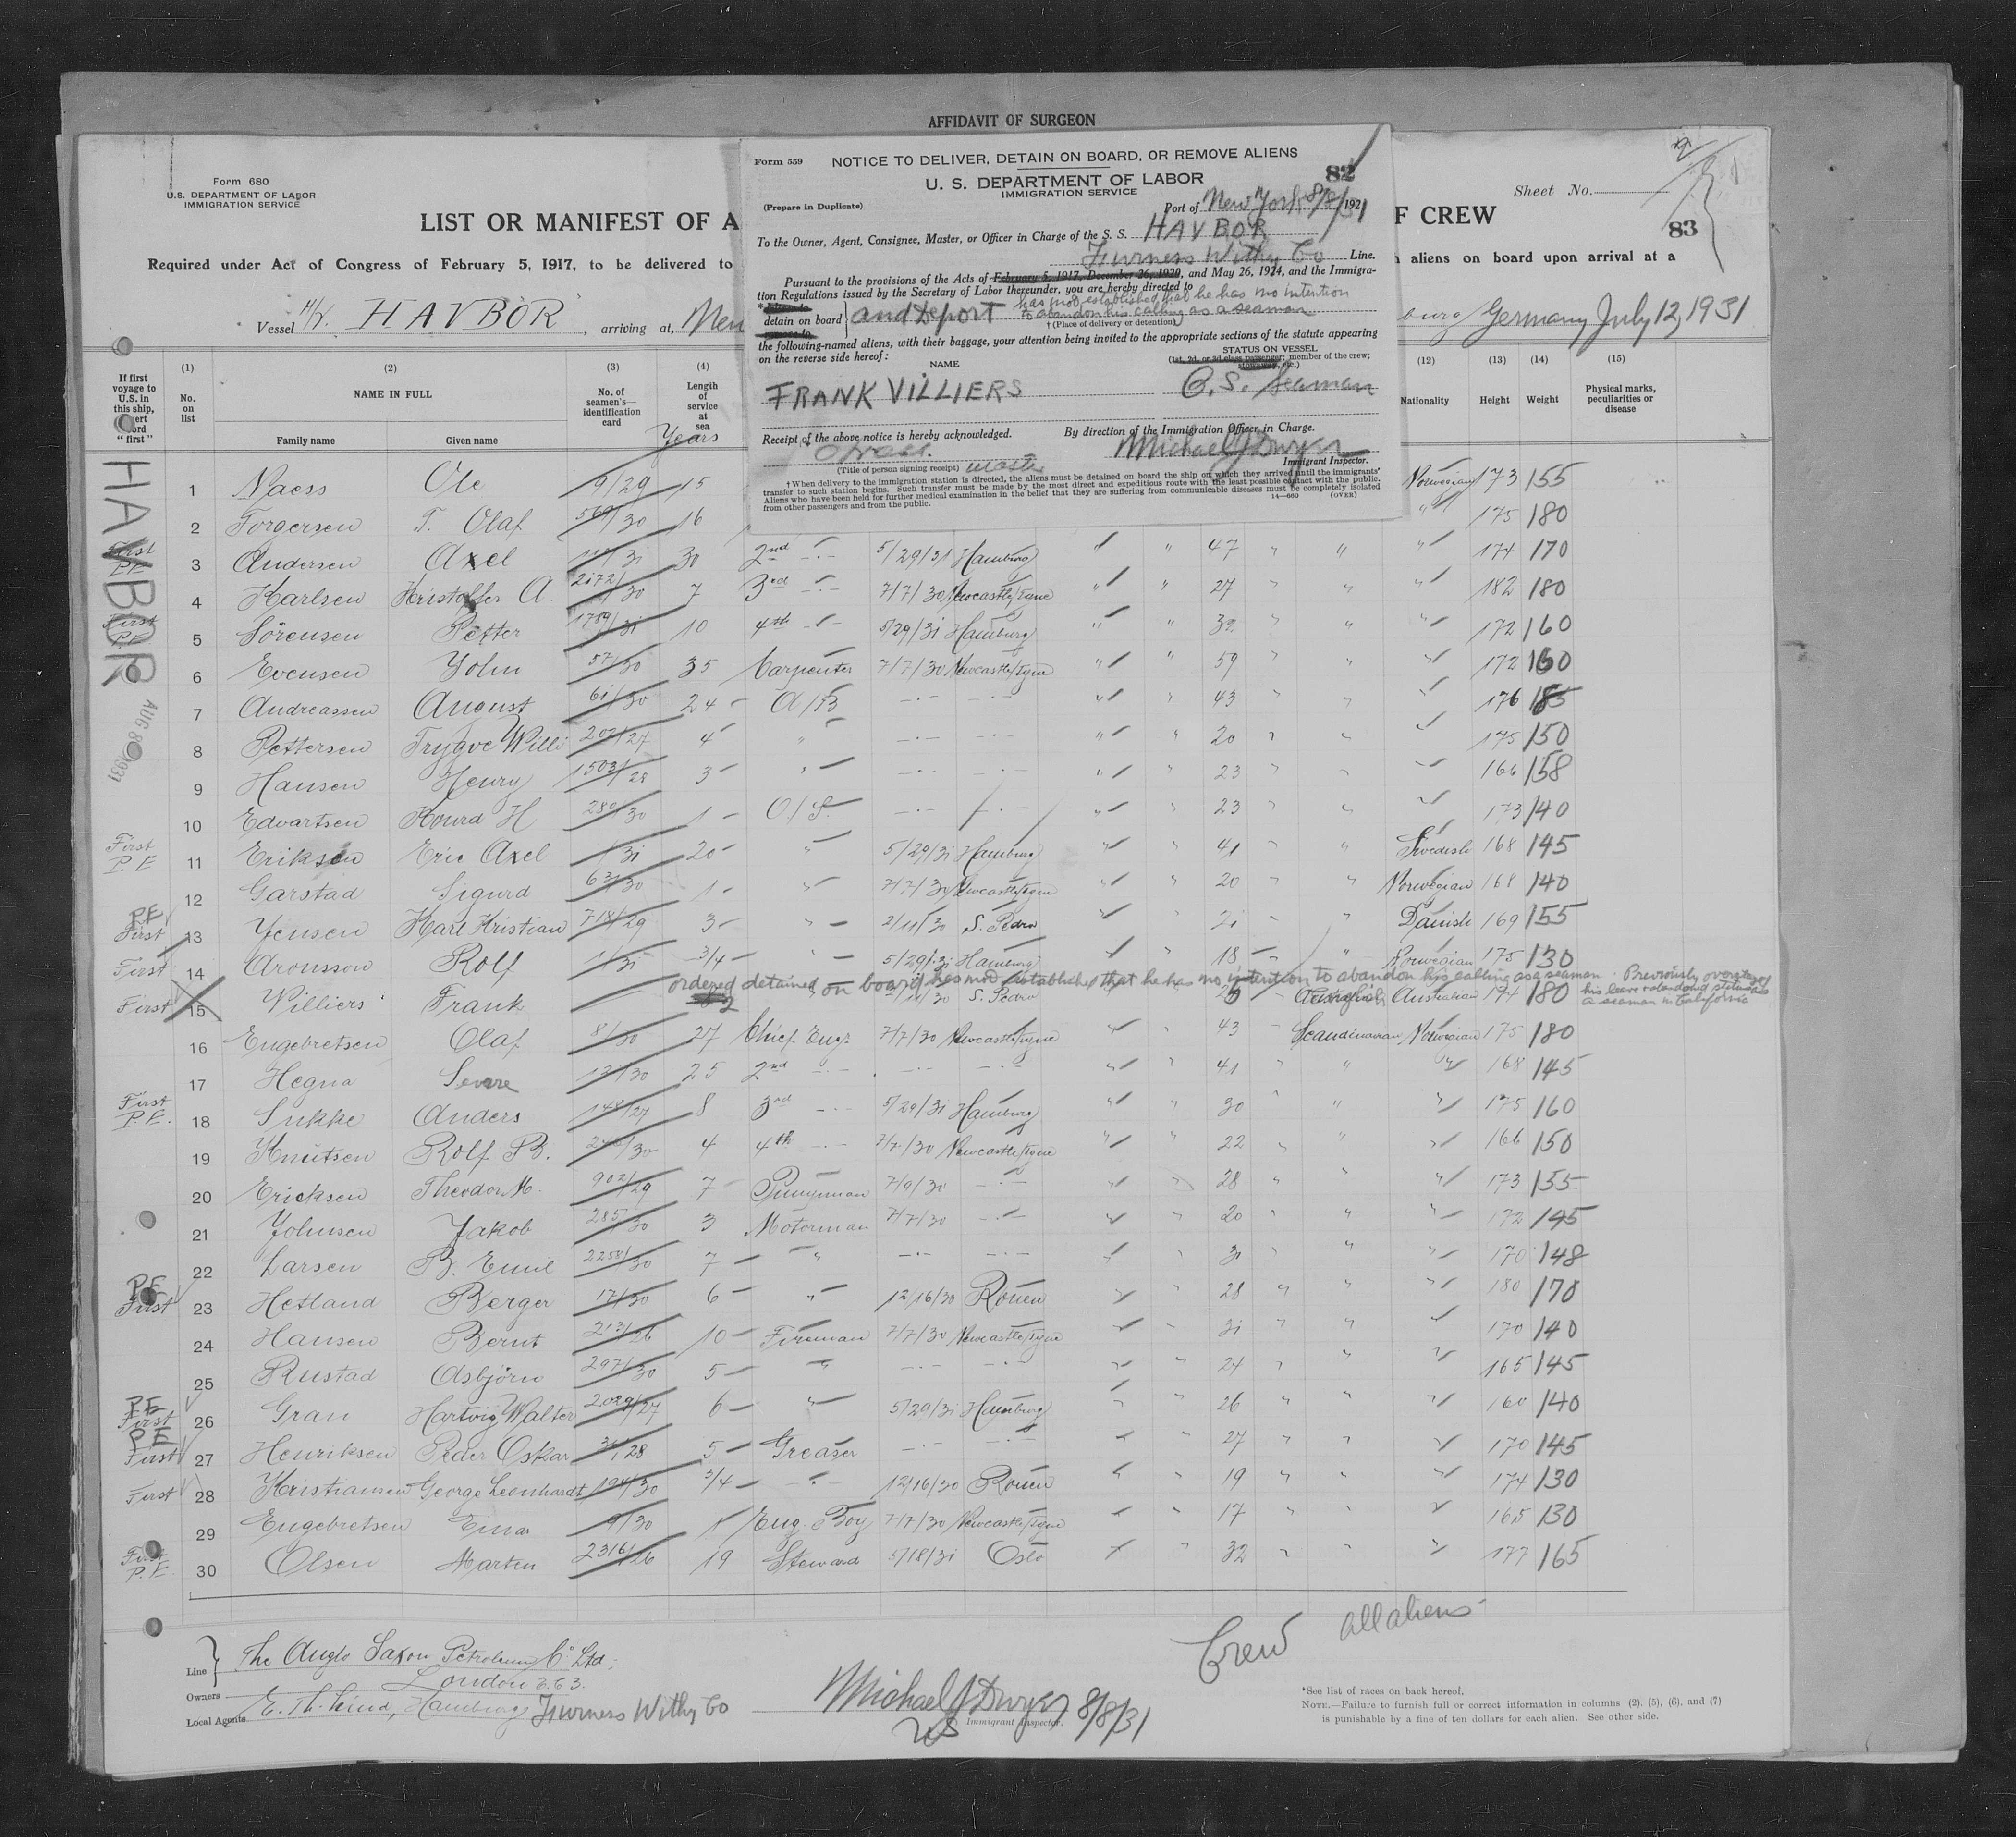 AFFIDAVIT OF SURGEON
Form 680
U. S. DEPARTMENT OF LABOR
IMMIGRATION SERVICE
LIST OR MANIFEST OF A
F CREW
Sheet No.
83
Required under Act of Congress of February 5, 1917, to be delivered to
aliens on board upon arrival at a
Vessel HAVBÖR, arriving at, New
burg Germany, July 12, 1931
Form 559 NOTICE TO DELIVER, DETAIN ON BOARD, OR REMOVE ALIENS
82
U. S. DEPARTMENT OF LABOR
IMMIGRATION SERVICE
(Prepare in Duplicate)
Port of New York 8/8/1921
To the Owner, Agent, Consignee, Master, or Officer in Charge of the S. S. HAVBOR
Furness Withy Co Line.
Pursuant to the provisions of the Acts of February 5, 1917, December 26, 1920, and May 26, 1924, and the Immigra-
tion Regulations issued by the Secretary of Labor thereunder, you are hereby directed to
detain on board and Deport has not established that he has no intention
to abandon his calling as a seaman
† (Place of delivery or detention)
the following-named aliens, with their baggage, your attention being invited to the appropriate sections of the statute appearing
on the reverse side hereof:
NAME
STATUS ON VESSEL
(1st, 2d, or 3d class passenger; member of the crew;
stowaway, etc.)
FRANK VILLIERS O.S. Seaman
Receipt of the above notice is hereby acknowledged.
By direction of the Immigration Officer in Charge.
Michael J Dwyer
Immigrant Inspector.
(Title of person signing receipt) Master
† When delivery to the immigration station is directed, the aliens must be detained on board the ship on which they arrived until the immigrants'
transfer to such station begins. Such transfer must be made by the most direct and expeditious route with the least possible contact with the public.
Aliens who have been held for further medical examination in the belief that they are suffering from communicable diseases must be completely isolated
from other passengers and from the public.
14—680 (OVER)
(1) (2) (3) (4) (12) (13) (14) (15)
If first voyage to U.S. in this ship, word "first"
No. on list
NAME IN FULL
Family name Given name
No. of seamen's identification card
Length of service at sea
Years
Nationality Height Weight
Physical marks, peculiarities or disease
HAVBOR
AUG 8 1931
1 Naess Ole 9/29 15 Norwegian 173 155
2 Torgersen T. Olaf 569/30 16 " 175 180
First P.E. 3 Andersen Axel 30 2nd -·- 5/29/31 Hamburg " " 47 " " " 174 170
4 Karlsen Kristoffer A. 2172/30 7 3rd -·- 7/7/30 Newcastle/Tyne " " 27 " " " 182 180
First P.E. 5 Sörensen Petter 1789/31 10 4th -·- 5/29/31 Hamburg " " 32 " " " 172 160
6 Evensen John 57/30 35 Carpenter 7/7/30 Newcastle/Tyne " " 59 " " " 172 160
7 Andreassen August 61/30 24 A/B -·- -·- " " 43 " " " 176 185
8 Pettersen Trygve Willi 202/27 4 " -·- -·- " " 20 " " " 175 150
9 Hansen Henry 1503/28 3 " -·- -·- " " 23 " " " 166 158
10 Edvartsen H 280/30 1 O/S. -·- -·- " " 23 " " " 173 140
First P.E 11 Eriksen Eric Axel 1/31 20 " 5/29/31 Hamburg " " 41 " " Swedish 168 145
12 Garstad Sigurd 631/30 1 " 7/7/30 Newcastle/Tyne " " 20 " " Norwegian 168 140
P.E. First 13 Jensen Karl Kristian 718/29 3 " 2/11/30 S. Pedro " " 21 " " Danish 169 155
First 14 Aronsson Rolf 1/31 3/4 " 5/29/31 Hamburg " " 18 " " Norwegian 175 130
ordered detained on board has not established that he has no intention to abandon his calling as a seaman. Previously overstayed
his leave & abandoned status as
a seaman in California
First 15 Villiers Frank 2 S. Pedro 25 English Australian 174 180
16 Engebretsen Olaf 8/30 27 Chief Engr 7/7/30 Newcastle/Tyne " " 43 " Scandinavian Norwegian 175 180
17 Hegna Severe 13/30 25 2nd -·- -·- -·- " " 41 " " " 168 145
First P.E. 18 Sukke Anders 148/27 8 3rd -·- 5/29/31 Hamburg " " 30 " " " 175 160
19 Knutsen Rolf B. 30 4 4th -·- 7/7/30 Newcastle/Tyne " " 22 " " " 166 150
20 Ericksen Theodor M. 902/29 7 Pumpman 7/9/30 -·- " " 28 " " " 173 155
21 Johnsen Jakob 285/30 3 Motorman 7/7/30 -·- " " 20 " " " 172 145
22 Larsen B. Emil 2258/30 7 " -·- -·- " " 31 " " " 170 148
P.E. First 23 Hetland Berger 17/30 6 " 12/16/30 Rouen " " 28 " " " 180 170
24 Hansen Bernt 213/26 10 Fireman 7/7/30 Newcastle/Tyne " " 31 " " " 170 140
25 Rustad Asbjörn 297/30 5 " -·- -·- " " 24 " " " 165 145
P.E. First 26 Gran Hartvig Walter 2029/27 6 " 5/29/31 Hamburg " " 26 " " " 160 140
P.E. First 27 Henriksen Peder Oskar 28 5 Greaser -·- -·- " " 27 " " " 170 145
First 28 Kristiansen George Leonhardt 194/30 3/4 " 12/16/30 Rouen " " 19 " " " 174 130
29 Engebretsen Einar 9/30 1 Eng. Boy 7/7/30 Newcastle/Tyne " " 17 " " " 165 130
First P.E. 30 Olsen Marten 2316/26 19 Steward 5/18/31 Oslo " " 32 " " " 177 165
Line The Anglo Saxon Petroleum Co Ltd;
Owners London E.C 3.
Local Agents Hamburg Furness Withy Co
Michael J Dwyer 8/8/31
Immigrant Inspector.
Crew All aliens
*See list of races on back hereof.
NOTE.—Failure to furnish full or correct information in columns (2), (5), (6), and (7)
is punishable by a fine of ten dollars for each alien. See other side.